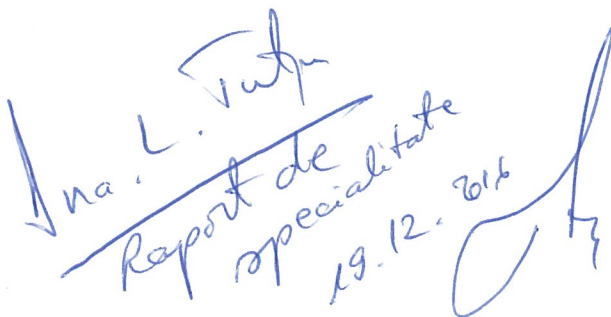 Dna. L.
Raport de
specialitate
19.12.2016